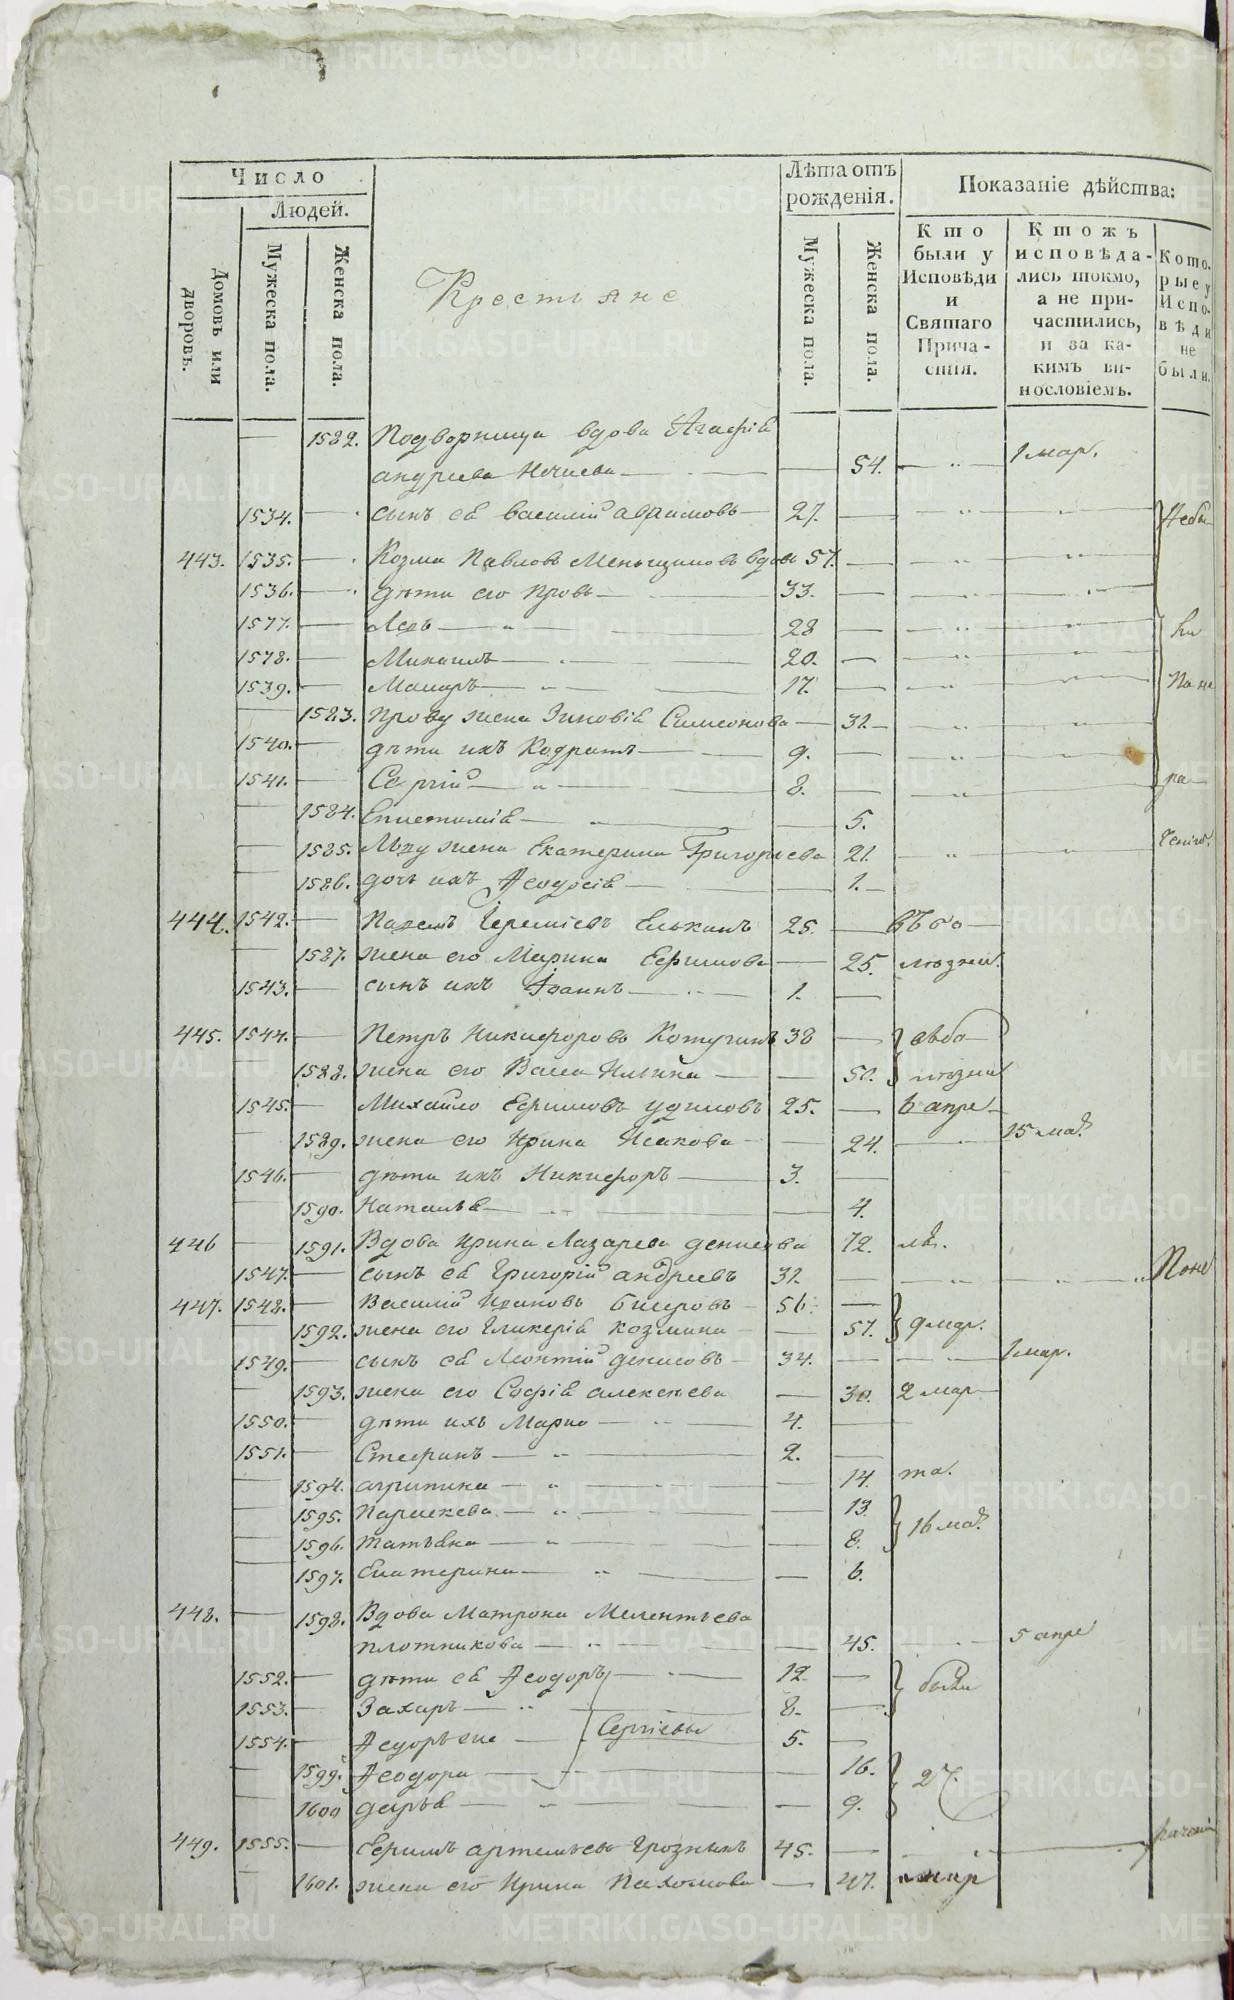 Число
Людей.
Домовъ или дворовъ.
Мужеска пола.
Женска пола.
Крестьяне
Лѣта отъ рожденія.
Мужеска пола.
Женска пола.
Показаніе дѣйства:
Кто были у Исповѣди и Святаго Прича-стія.
Ктожъ исповѣда-лись токмо, а не при-частились, и за ка-кимъ ви-нословіемъ.
Кото-рые у Испо-вѣди не были.
1582. Подворница вдова Агафія
андреева 54. 1 мар.
1534. сынъ ея василий авраамовъ 27. Небы
443. 1535. Козма Павловъ Меньщиковъ вдовъ 57.
1536. дѣти его Провъ 33.
1577. Левъ 28
1578. Михаилъ 20.
1539. Макаръ 17.
1583. Прову жена Зиновія Симеонова 31.
1540. дѣти ихъ Кодратъ 9.
1541. Сергій 8. ра
1584. Епистимія 5.
1585. Льву жена Екатерина Григорьева 21.
1586. дочь ихъ Ѳеодосія 1.
444. 1542. Павелъ Іереміевъ Елькинъ 25. въ бо
1587. жена его Марина Ефимова 25. лѣзни.
1543. сынъ ихъ Іоаннъ 1.
445. 1544. Петръ Никифоровъ 38
1588. жена его Васса Ильина 50. лѣзни
1545. Михайло Ефимовъ удиловъ 25. 6 апре
1589. жена его Ирина Исакова 24. 15 мар
1546. дѣти ихъ Никифоръ 3.
1590. Наталья 4.
446 1591. Вдова Ирина Лазарева 72.
1547. сынъ ея Григорій андреевъ 31.
447. 1548. Василій Ивановъ Бисеровъ 56.
1592. жена его Гликерія козмина 57. 9 мар.
1549. сынъ ея Леонтій денисовъ 34. 1 мар.
1593. жена его Софія алексѣева 30. 2 мар
1550. дѣти ихъ Марко 4.
1551. Стефанъ 2.
1594. агрипина 14. та.
1595. Параскева 13.
1596. Татьяна 8. 16 мар.
1597. Екатерина 6.
448. 1598. Вдова Матрона Мелентьева
плотникова 45. 5 апре
1552. дѣти ея Ѳеодоръ 12.
1553. Захаръ 8. были
1554. Ѳедоръ же 5. Сергіевы
1599. Ѳеодора 16.
1600 дарья 9. 27.
449. 1555. Ефимъ артемьевъ Грозныхъ 45.
1601. жена его Ирина Пахомова 47.
METRIKI.GASO-URAL.RU